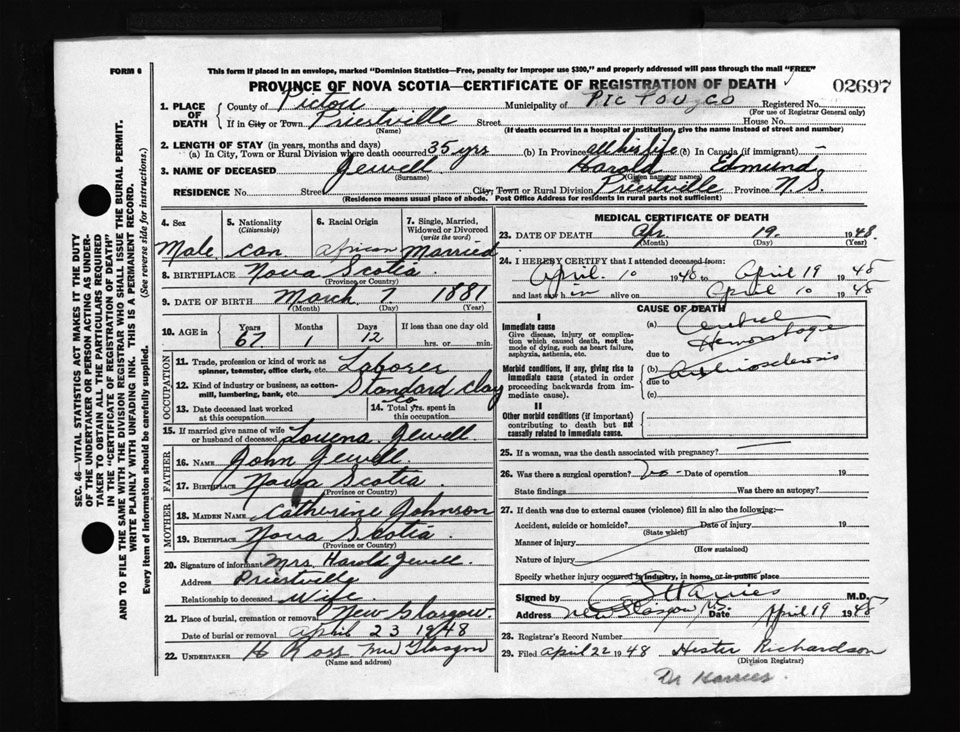 FORM 6
This form if placed in an envelope, marked "Dominion Statistics—Free, penalty for improper use $300," and properly addressed will pass through the mail "FREE"
PROVINCE OF NOVA SCOTIA—CERTIFICATE OF REGISTRATION OF DEATH
02697
1. PLACE OF DEATH
County of Pictou
Municipality of Pictou Co
Registered No.
(For use of Registrar General only)
If in City or Town Priestville Street House No.
(Name) (If death occurred in a hospital or institution, give the name instead of street and number)
2. LENGTH OF STAY (in years, months and days)
(a) In City, Town or Rural Division where death occurred 35 yrs (b) In Province all his life (c) In Canada (if immigrant)
3. NAME OF DECEASED Jewell Harold Edmund
(Surname) (Given name or names)
RESIDENCE No. Street City, Town or Rural Division Priestville Province N.S.
(Residence means usual place of abode. Post Office Address for residents in rural parts not sufficient)
SEC. 46—VITAL STATISTICS ACT MAKES IT THE DUTY
OF THE UNDERTAKER OR PERSON ACTING AS UNDER-
TAKER TO OBTAIN ALL THE PARTICULARS REQUIRED
IN THE "CERTIFICATE OF REGISTRATION OF DEATH"
AND TO FILE THE SAME WITH THE DIVISION REGISTRAR WHO SHALL ISSUE THE BURIAL PERMIT.
WRITE PLAINLY WITH UNFADING INK. THIS IS A PERMANENT RECORD.
Every item of information should be carefully supplied. (See reverse side for instructions.)
4. Sex
Male
5. Nationality
(Citizenship)
Can.
6. Racial Origin
African
7. Single, Married,
Widowed or Divorced
(write the word)
Married
8. BIRTHPLACE Nova Scotia
(Province or Country)
9. DATE OF BIRTH March 7. 1881
(Month) (Day) (Year)
10. AGE in Years Months Days If less than one day old
67 1 12 hrs. or min.
OCCUPATION
11. Trade, profession or kind of work as
spinner, teamster, office clerk, etc. Laborer
12. Kind of industry or business, as cotton-
mill, lumbering, bank, etc. Standard Clay
Co
13. Date deceased last worked
at this occupation
14. Total yrs. spent in
this occupation
15. If married give name of wife
or husband of deceased Louena Jewell
FATHER
16. NAME John Jewell
17. BIRTHPLACE Nova Scotia
(Province or Country)
MOTHER
18. MAIDEN NAME Catherine Johnson
19. BIRTHPLACE Nova Scotia
(Province or Country)
20. Signature of informant Mrs. Harold Jewell
Address Priestville
Relationship to deceased Wife.
21. Place of burial, cremation or removal New Glasgow.
Date of burial or removal April 23 1948
22. UNDERTAKER H Ross New Glasgow
(Name and address)
MEDICAL CERTIFICATE OF DEATH
23. DATE OF DEATH Apr. 19. 1948.
(Month) (Day) (Year)
24. I HEREBY CERTIFY that I attended deceased from:
April. 10 1948 to April 19 1948
and last saw him alive on April 10 1948
CAUSE OF DEATH
I
Immediate cause
Give disease, injury or complica-
tion which caused death, not the
mode of dying, such as heart failure,
asphyxia, asthenia, etc.
(a) Cerebral
Hemorrhage
due to
Morbid conditions, if any, giving rise to
immediate cause (stated in order
proceeding backwards from im-
mediate cause).
(b) Arteriosclerosis
due to
(c)
II
Other morbid conditions (if important)
contributing to death but not
causally related to immediate cause.
25. If a woman, was the death associated with pregnancy?
26. Was there a surgical operation? No Date of operation 19
State findings Was there an autopsy?
27. If death was due to external causes (violence) fill in also the following:—
Accident, suicide or homicide? Date of injury 19
(State which)
Manner of injury
(How sustained)
Nature of injury
Specify whether injury occurred in industry, in home, or in public place
Signed by Harries M.D.
Address New Glasgow N.S. Date April 19 1948
28. Registrar's Record Number
29. Filed April 22 1948 Hester Richardson
(Division Registrar)
Dr Harries.